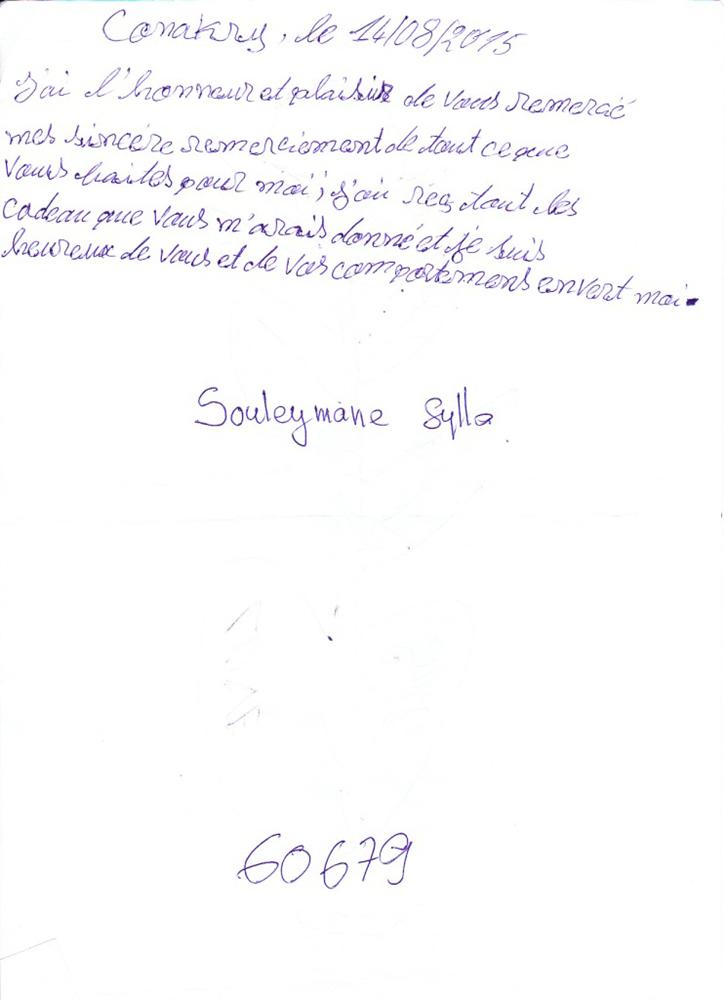 Conakry, le 14/08/2015
j'ai l'honneur et plaisir de vous remercié
mes sincère remerciement de tout ce que
vous faites pour moi; j'ai reçs tout les
cadeau que vous m'avais donné et je suis
heureux de vous et de vos comportemens envert moi.
Souleymane Sylla
60679